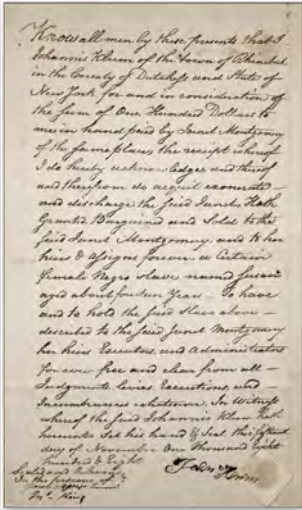 Know all men by these presents that I
Johannis Klum of the Town of Rhinebeck
in the County of Dutchess and State of
New York for and in consideration of
the sum of One Hundred Dollars to
me in hand paid by Janet Montgomery
of the same place, the receipt whereof
I do hereby acknowledge and thereof
and therefrom do acquit exonerate
and discharge the said Janet, Hath
Granted, Bargained and Sold to the
said Janet Montgomery and to her
heirs & assigns forever a Certain
female Negro Slave named Susan
aged about fourteen Years - To have
and to hold the said Slave above -
described to the said Janet Montgomery
her heirs Executors, and Administrators
for ever free and clear from all -
Judgments, Levies Executions, and -
Incumbrances whatsoever. In Witness
whereof the said Johannis Klum Hath
hereunto Set his hand & Seal this
day of November One thousand Eight
hundred & Eight
Sealed and Delivered
In the presence of
King